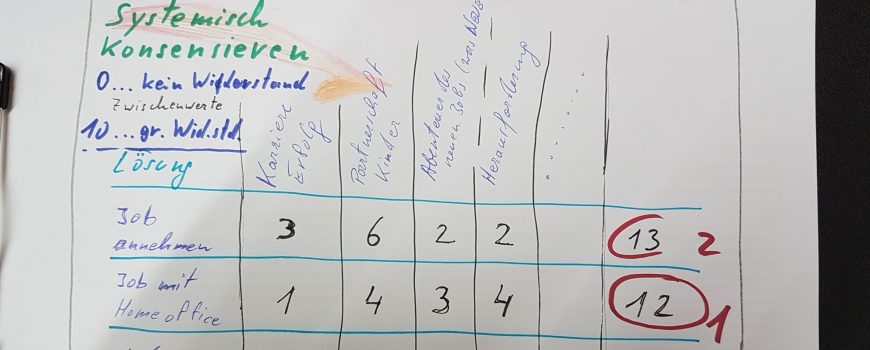 Systemisch
Konsensieren
0... kein Widerstand
Zwischenwerte
10... gr. Wid.std.
Lösung
Karriere
Erfolg
Partnerschaft
Kinder
Abenteuer des
neuen Jobs (was Neues
Herausforderung
Job
annehmen
3 6 2 2 13 2
Job mit
Home office
1 4 3 4 12 1